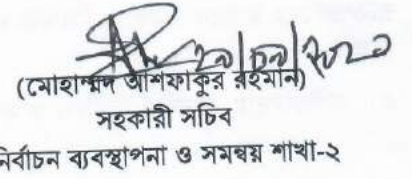 (মোহাম্মদ আশফাকুর রহমান)
সহকারী সচিব
নির্বাচন ব্যবস্থাপনা ও সমন্বয় শাখা-২